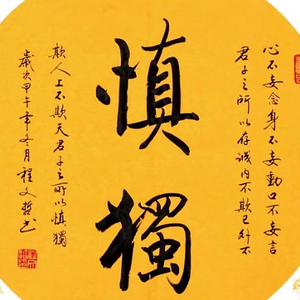 慎獨
心不妄念身不妄動口不妄言
君子之所以存誠内不欺己外不
欺人上不欺天君子之所以慎獨
歲次甲午年冬月程文哲书